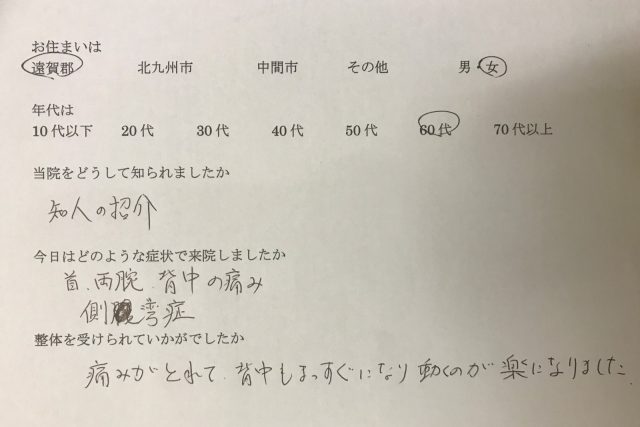 お住まいは
遠賀郡 北九州市 中間市 その他 男・女
年代は
10代以下 20代 30代 40代 50代 60代 70代以上
当院をどうして知られましたか
知人の紹介
今日はどのような症状で来院しましたか
首、両腕、背中の痛み
側湾症
整体を受けられていかがでしたか
痛みがとれて、背中もまっすぐになり動くのが楽になりました